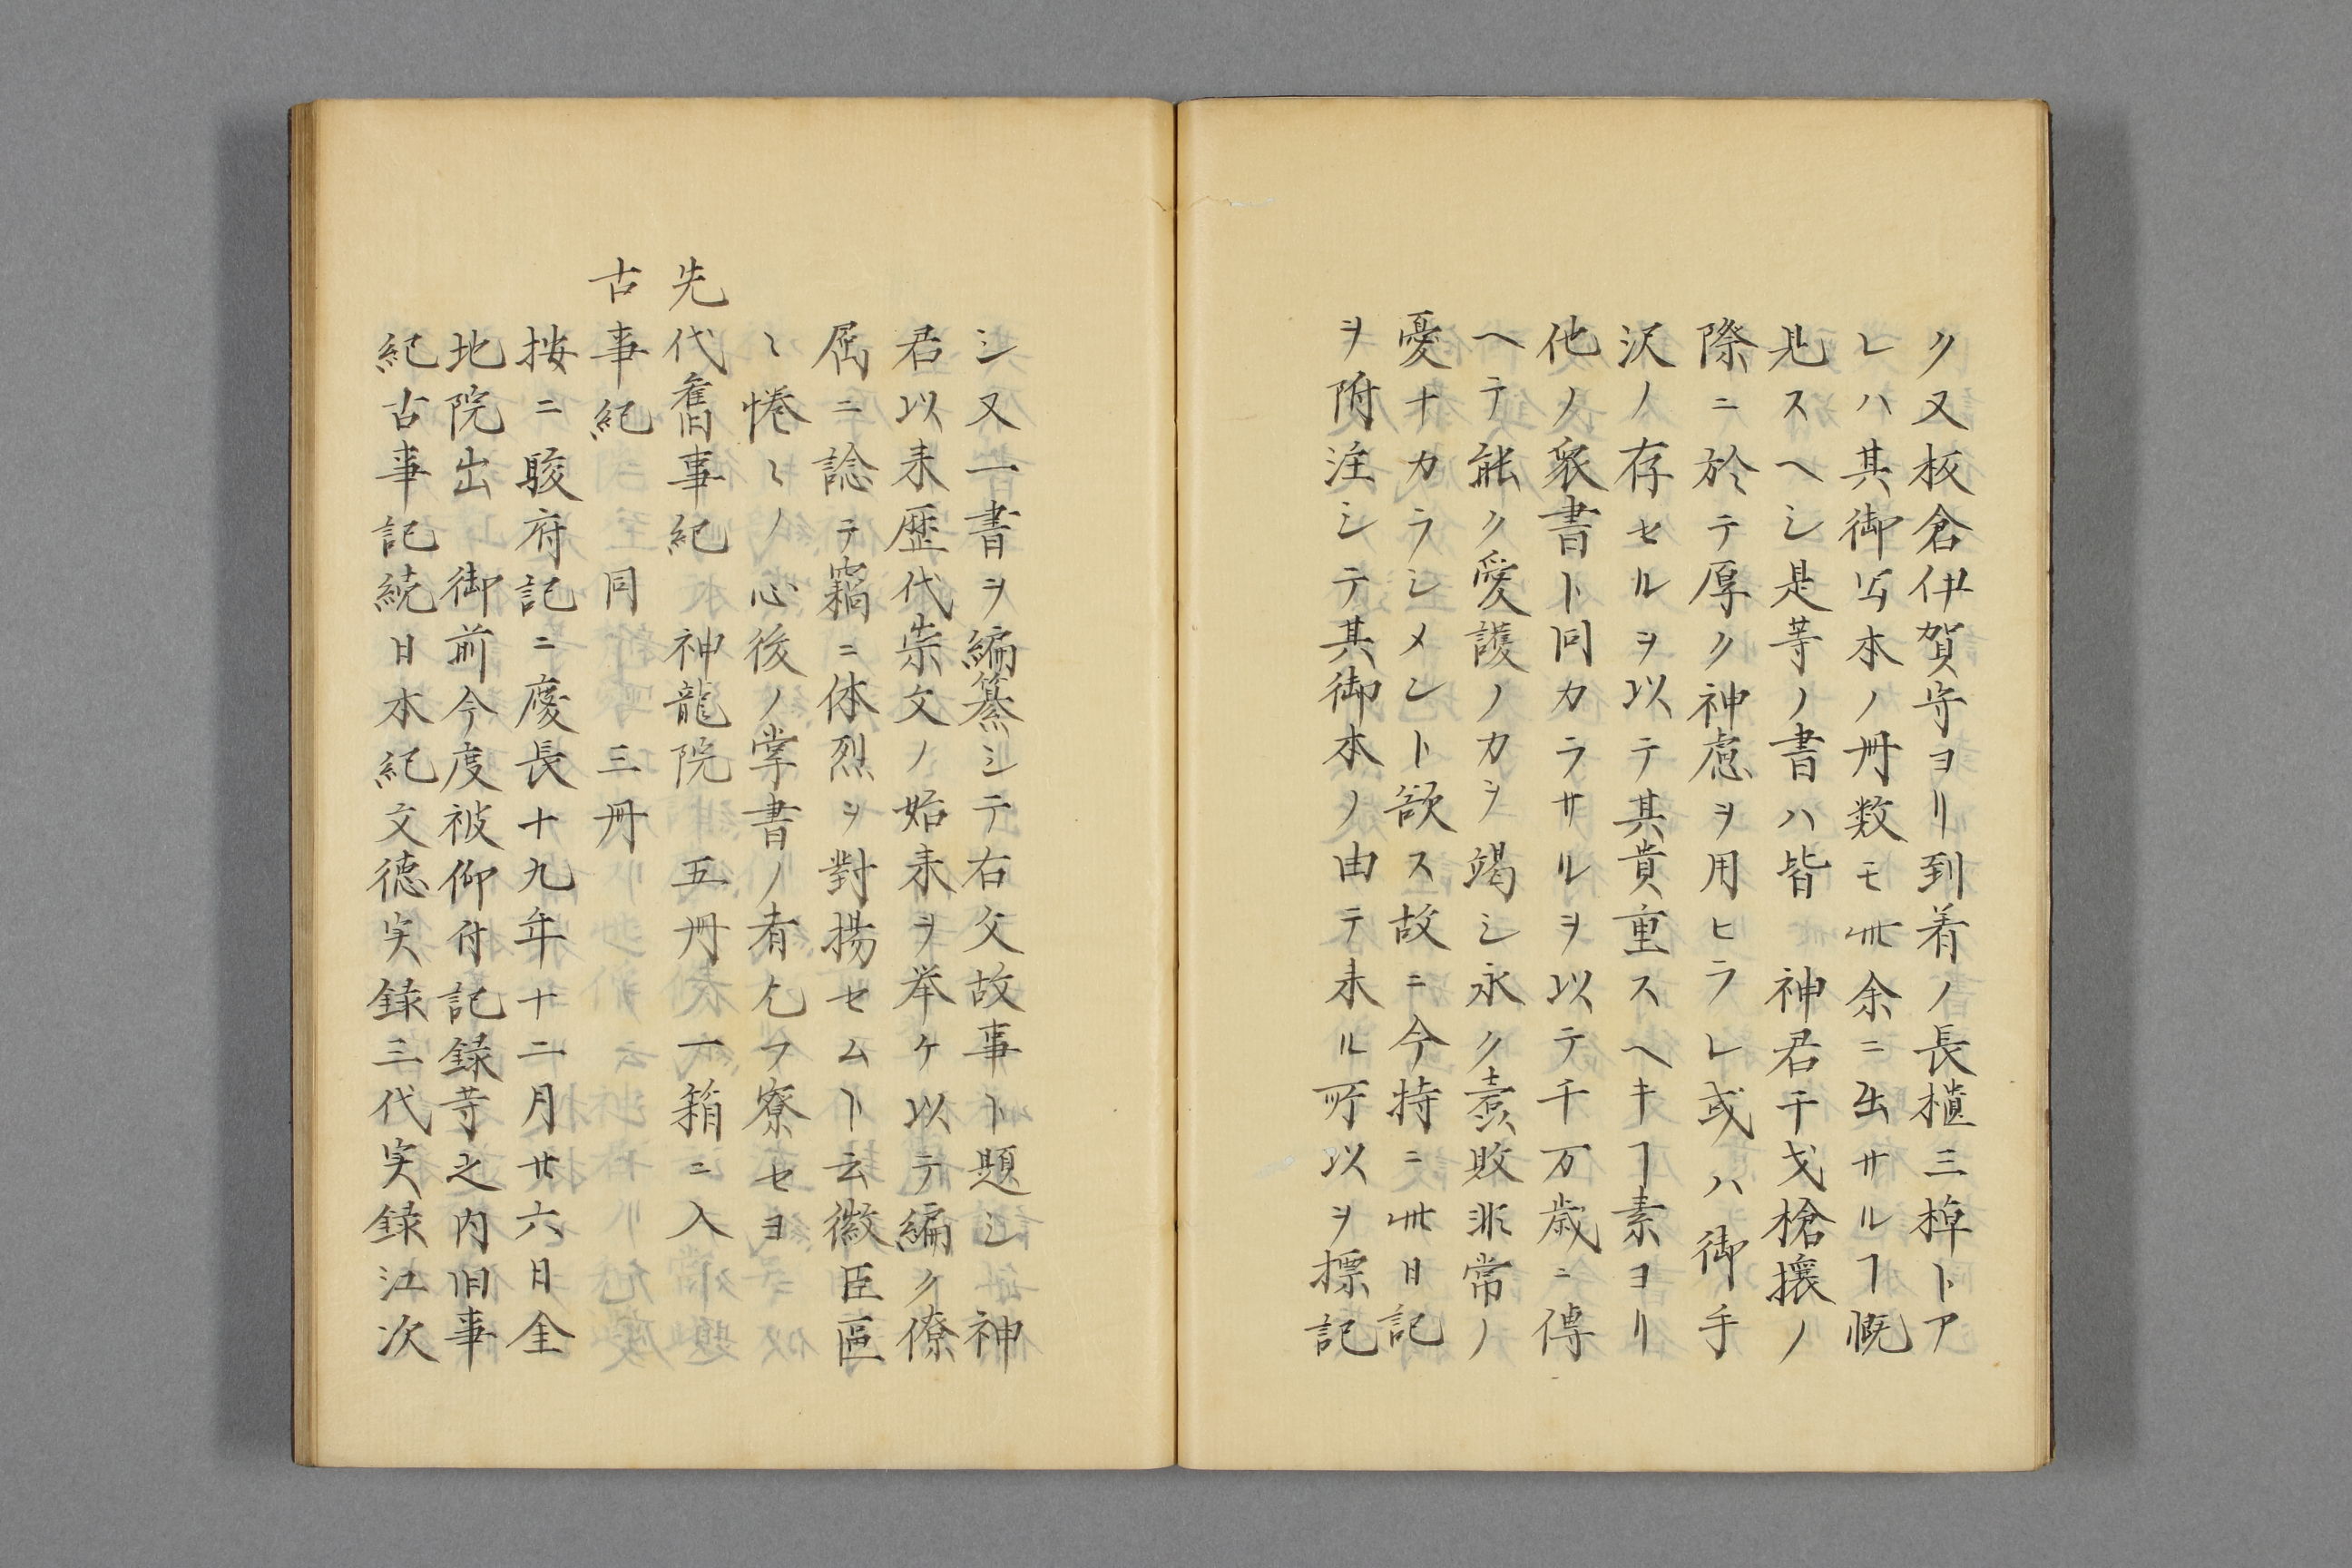 ク又板倉伊賀守ヨリ到着ノ長樻三棹トア
レハ其御写本ノ冊数モ卅余ニ出サルヿ慨
見スヘシ是等ノ書ハ皆　神君干戈槍攘ノ
際ニ於テ厚ク神慮ヲ用ヒラレ或ハ御手
沢ノ存セルヲ以テ其貴重スヘキヿ素ヨリ
他ノ衆書ト同カラサルヲ以テ千万歳ニ傳
ヘテ能ク愛護ノ力ヲ竭シ永ク蠧敗非常ノ
憂ナカラシメント欲ス故ニ今持ニ卅日記
ヲ附注シテ其御本ノ由テ来ル所以ヲ摽記
シ又一書ヲ編纂シテ右文故事ト題シ　神
君以来歴代崇文ノ始末ヲ挙ケ以テ編ク僚
属ニ諗テ竊ニ休烈ヲ對揚セムト云微臣區
〻惓〻ノ心後ノ掌書ノ者乞フ寮セヨ
先代舊事紀　神龍院　五冊　一箱ニ入
古事紀　同　三冊
按ニ駿府記ニ慶長十九年十二月廿六日金
地院出　御前今度被仰付記録等之内旧事
紀古事記続日本紀文徳実録三代実録江次